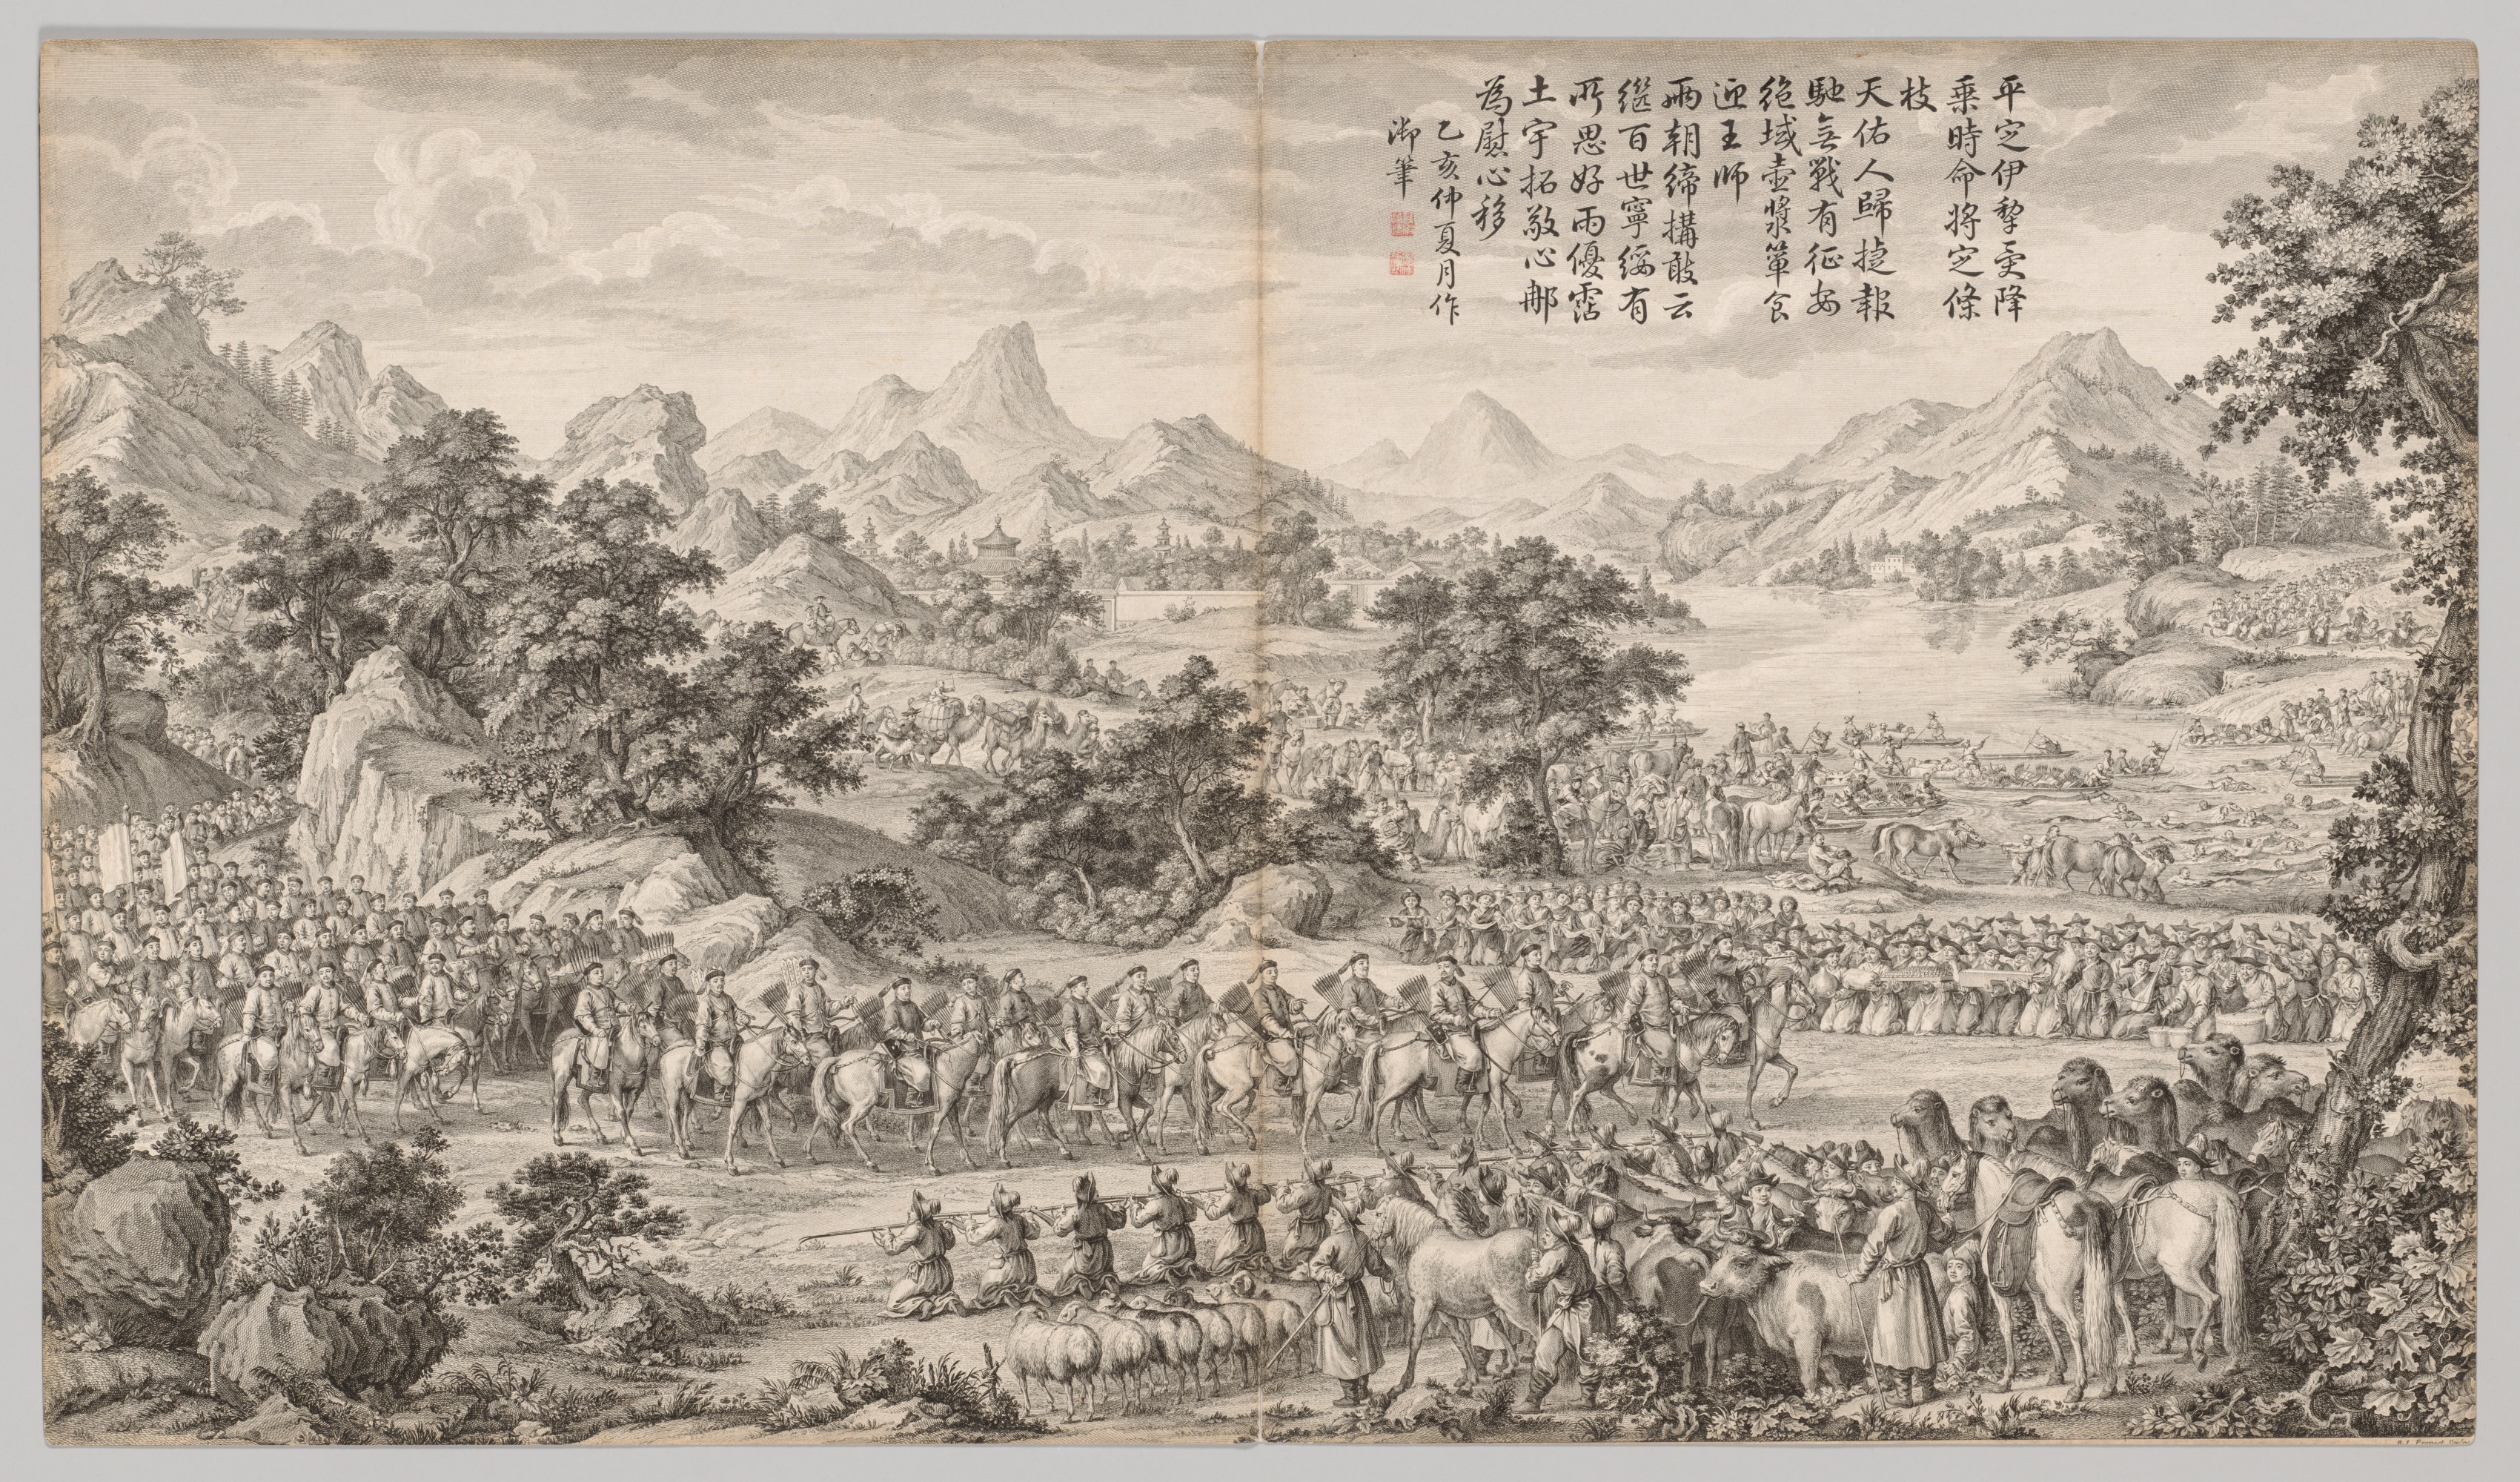 平定伊犂受降
乗時命将定條
枝
天佑人歸捷報
馳無戰有征安
絶域壺漿簞食
迎王師
兩朝締搆敢云
繼百世寧綏有
所思好雨優霑
土宇拓敬心那
為慰心移
乙亥仲夏月作
御筆